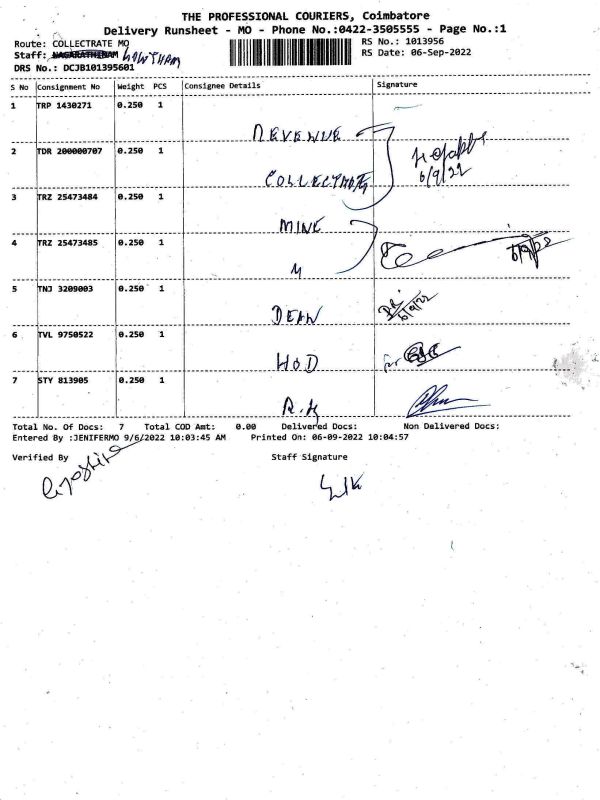 THE PROFESSIONAL COURIERS, Coimbatore
Delivery Runsheet - MO - Phone No.:0422-3505555 - Page No.:1
Route: COLLECTRATE MO
RS No.: 1013956
Staff: NAGARATHINAM GOWTHAM
RS Date: 06-Sep-2022
DRS No.: DCJB101395601
S No Consignment No Weight PCS Consignee Details Signature
1 TRP 1430271 0.250 1
REVENUE
2 TDR 200000707 0.250 1
6/9/22
COLLECTRATE
3 TRZ 25473484 0.250 1
MINE
4 TRZ 25473485 0.250 1
6/9/22
5 TNJ 3209003 0.250 1
6/9/22
DEAN
6 TVL 9750522 0.250 1
for
HOD
7 STY 813905 0.250 1
Total No. Of Docs: 7 Total COD Amt: 0.00 Delivered Docs: Non Delivered Docs:
Entered By :JENIFERMO 9/6/2022 10:03:45 AM Printed On: 06-09-2022 10:04:57
Verified By Staff Signature